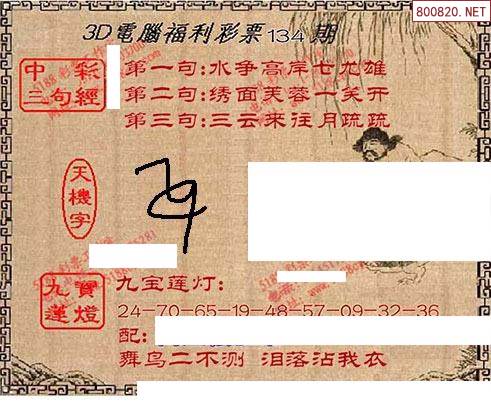 800820.NET
3D電腦福利彩票134期
中彩
三句經
第一句:水争高岸七九雄
第二句:绣面芙蓉一笑开
第三句:三云来往月疏疏
天機字
九寶
蓮燈
九宝莲灯:
24-70-65-19-48-57-09-32-36
配:
舞鸟二不测 泪落沾我衣